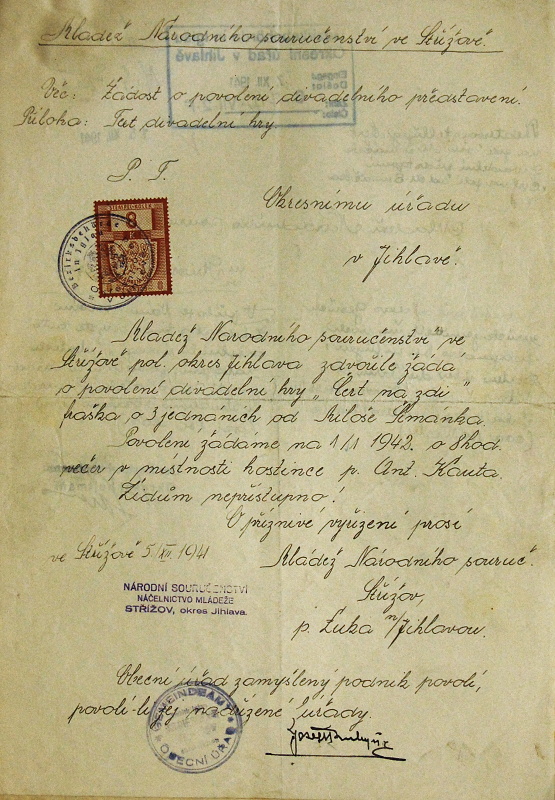 Mládež Národního souručenství ve Střížově.
Okresní úřad v Jihlavě
XII. 1941
Věc: Žádost o povolení divadelního představení.
Příloha: Text divadelní hry.
P. T.
Okresnímu úřadu
v Jihlavě.
8
Bezirksbehörde
in Iglau
8 8
Mládež Národního souručenství ve
Střížově pol. okres Jihlava zdvořile žádá
o povolení divadelní hry „Čert na zdi"
fraška o 3 jednáních od Miloše Šimánka.
Povolení žádáme na 1/1 1942. o 8 hod.
večer v místnosti hostince p. Ant. Kauta.
Židům nepřístupno!
O příznivé vyřízení prosí
ve Střížově 5./XII. 1941
Mládež Národního souruč.
NÁRODNÍ SOURUČENSTVÍ
NÁČELNICTVO MLÁDEŽE
STŘÍŽOV, okres Jihlava.
Střížov,
p. Luka n/Jihlavou.
Obecní úřad zamýšlený podnik povolí,
povolí-li jej nadřízené úřady.
GEMEINDEAMT
OBECNÍ ÚŘAD
Josef